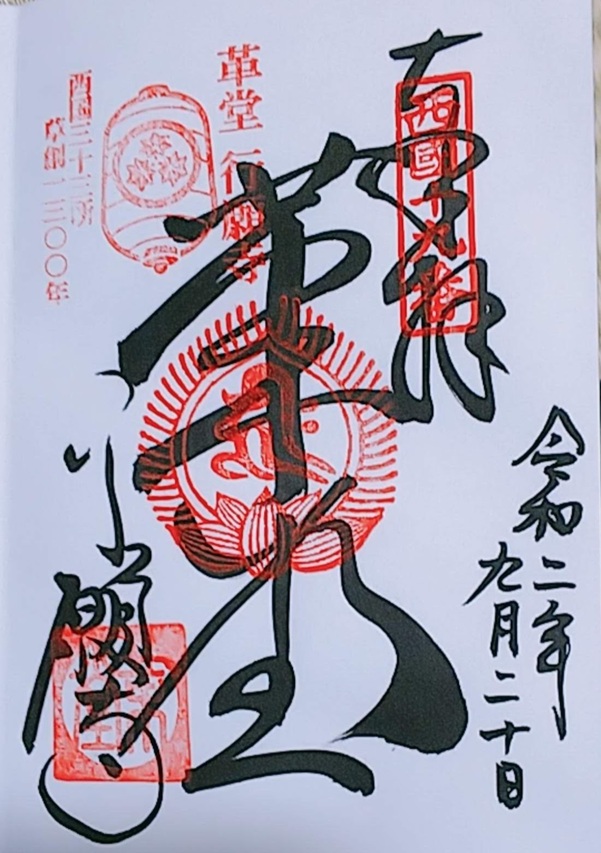 奉拝
西國十九番
令和二年
九月二十日
革堂
革堂 行願寺
西國三十三所
草創一三〇〇年
行願寺